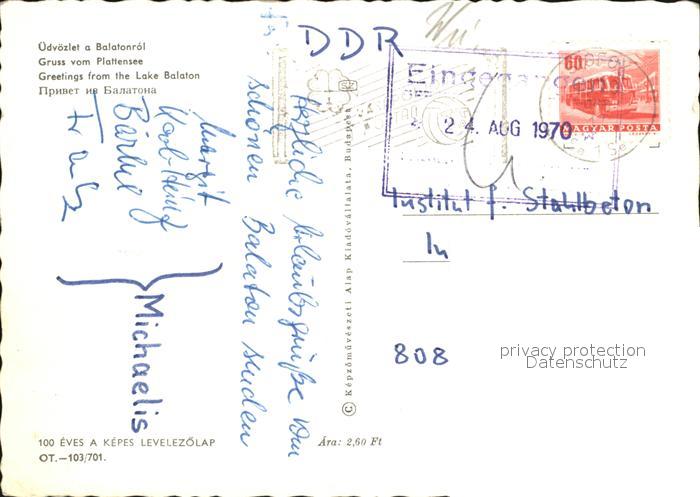 Üdvözlet a Balatonról
Gruss vom Plattensee
Greetings from the Lake Balaton
Привет из Балатона
DDR
Herzliche Urlaubsgrüße vom
schönen Balaton senden
Margit
Karl-Heinz
Bärbel
Michaelis
100 ÉVES A KÉPES LEVELEZŐLAP
OT.—103/701.
Ára: 2,60 Ft
© Képzőművészeti Alap Kiadóvállalata, Budapest
Eingegangen
24. AUG 1970
60
MAGYAR POSTA
Institut f. Stahlbeton
In
808
privacy protection
Datenschutz